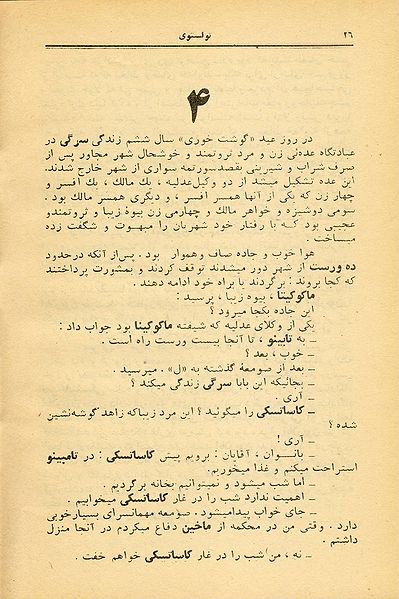 ۲۶
تولستوی
۴
در روز عید «گوشت خوری» سال ششم زندگی سرگی در
عبادتگاه عده‌ئی زن و مرد ثروتمند و خوشحال شهر مجاور پس از
صرف شراب و شیرینی بقصد سورتمه سواری از شهر خارج شدند.
این عده تشکیل میشد از دو وکیل عدلیه، یك مالك، یك افسر و
چهار زن که یکی از آنها همسر افسر، و دیگری همسر مالك بود.
سومی دوشیزه و خواهر مالك و چهارمی زن بیوهٔ زیبا و ثروتمندو
عجیبی بود که با رفتار خود شهریان را مبهوت و شگفت زده
میساخت.
هوا خوب و جاده صاف وهموار بود. پس‌از آنکه درحدود
ده ورست از شهر دور میشدند توقف کردند و بمشورت پرداختند
که کجا بروند: برگردند یا براه خود ادامه دهند.
ماکوکینا، بیوه زیبا، پرسید:
این جاده بکجا میرود؟
یکی از وکلای عدلیه که شیفته ماکوکینا بود جواب داد:
ـ به تابینو، تا آنجا بیست ورست راه است.
ـ خوب، بعد؟
ـ بعد از صومعهٔ گذشته به «ل». میرسید.
ـ بجائیکه این بابا سرگی زندگی میکند؟
ـ آری.
ـ کاساتسکی را میگوئید؟ این مرد زیباکه زاهد گوشه‌نشین
شده؟
ـ آری!
ـ بانوان، آقایان: برویم پیش کاساتسکی: در تامبینو
استراحت میکنم و غذا میخوریم.
ـ اما شب میشود و نمیتوانیم بخانه برگردیم.
ـ اهمیت ندارد شب را در غار کاساتسکی میخوابیم.
ـ جای خواب پیدامیشود. صومعه مهمانسرای بسیارخوبی
دارد. وقتی من در محکمه از ماخین دفاع میکردم در آنجا منزل
داشتم.
ـ نه، من شب را در غار کاساتسکی خواهم خفت.